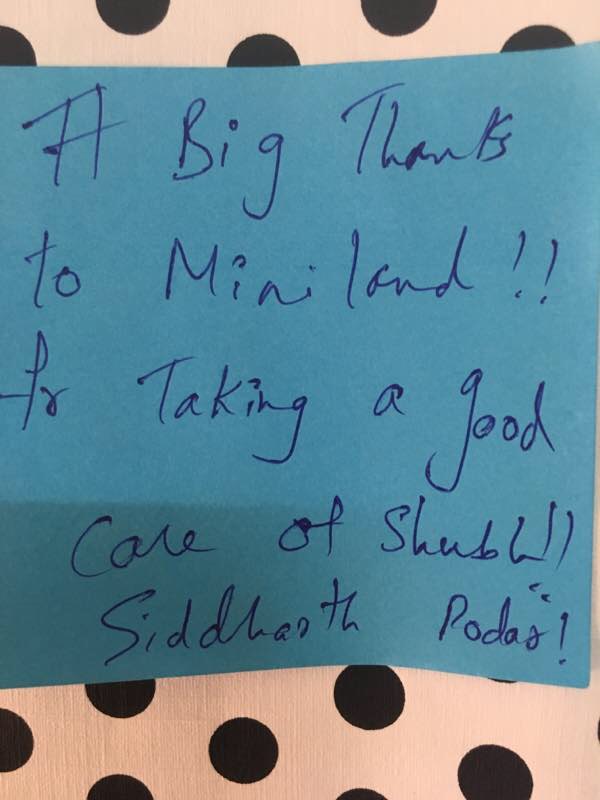 A Big Thanks
to Miniland!!
for Taking a good
Care of Shubh!!
Siddharth Podar!